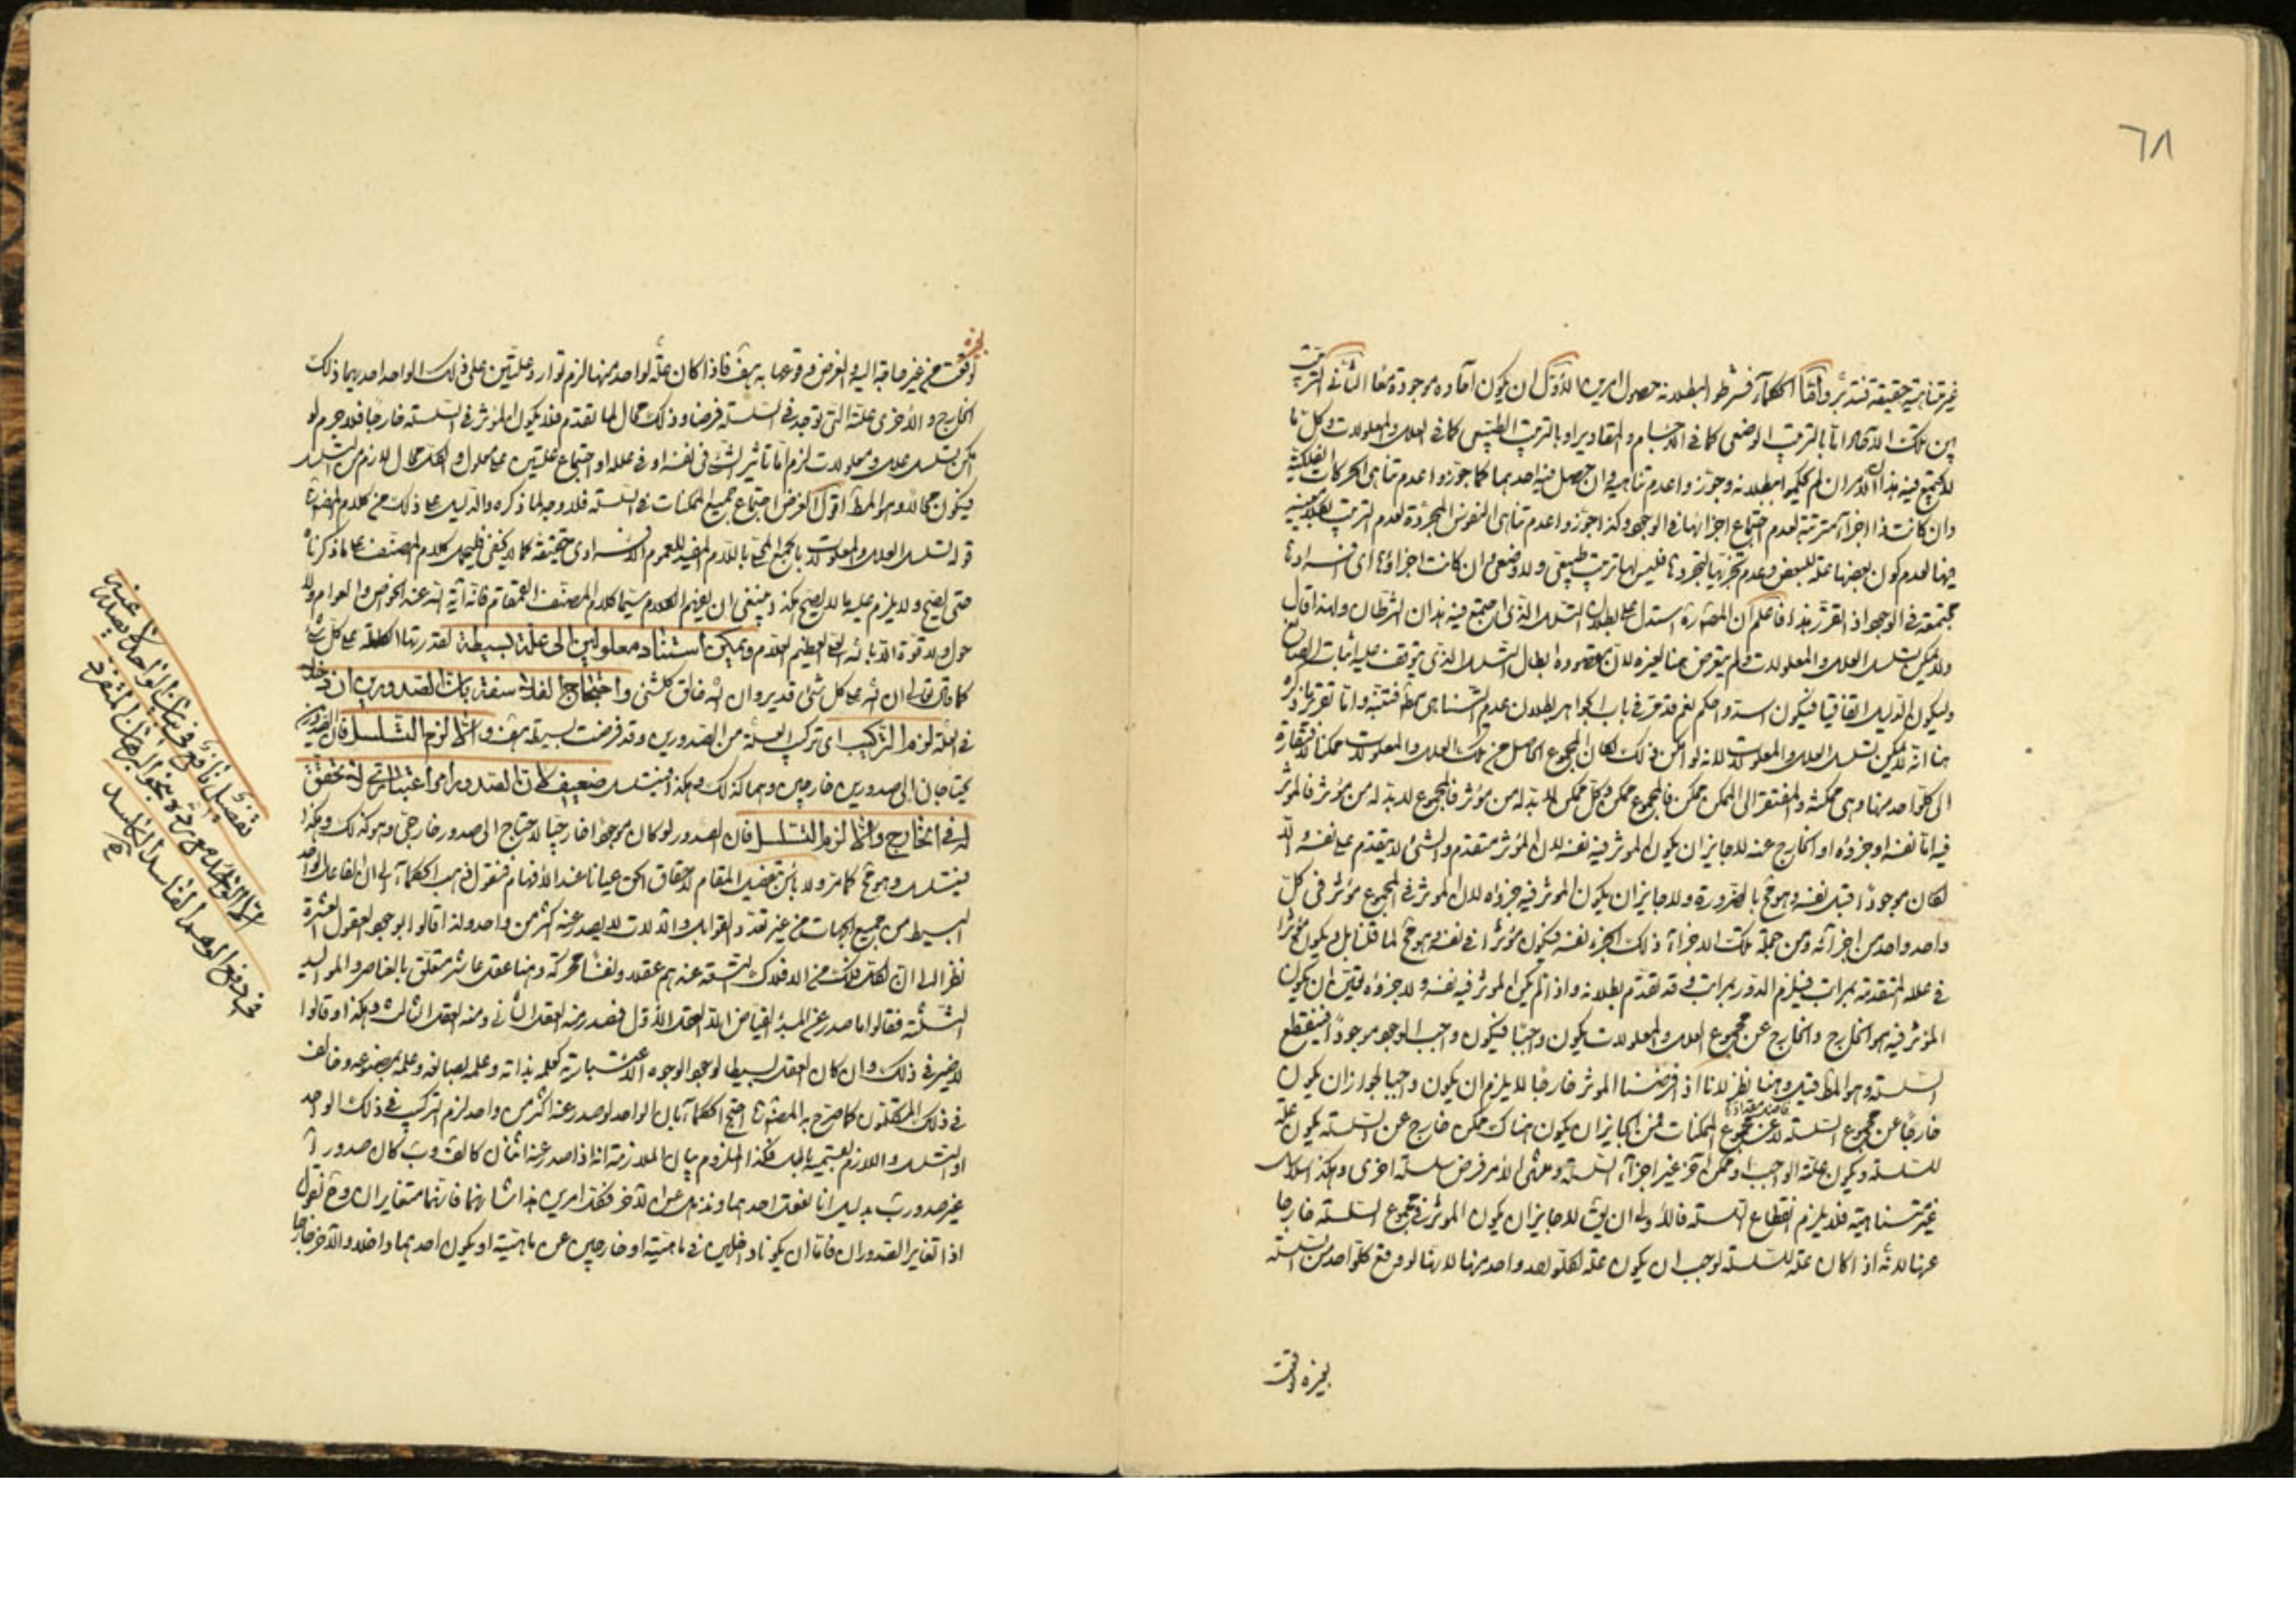 ٦٨
غير متناهية حقيقة فتدبّر وامّا الحكماء فشرطوا لبطلانه حصول امرين الاوّل ان يكون آحاده موجودة معًا الثاني الترتيب
بين تلك الآحاد امّا بالترتيب الوضعي كما في الاجسام والمقادير او بالترتيب الطبيعي كما في العلل والمعلولات وكلّ ما
لا يجتمع فيه هذان الامران لم يحكموا ببطلانه وجوّزوا عدم تناهيه وان حصل فيه احدهما كما جوّزوا عدم تناهي الحركات الفلكيّة
وان كانت ذا اجزاء مترتبة لعدم اجتماع اجزائها في الوجود وكذا جوّزوا عدم تناهي النفوس المجرّدة لعدم الترتيب
فيها لعدم كون بعضها علّة للبعض وعدم تحيّزها لتجرّدها فليس لها ترتيب طبيعي ولا وضعي وان كانت اجزاؤها اى افرادها
مجتمعة في الوجود اذا تقرّر هذا فاعلم ان المصنف ره استدل على بطلان التسلسل الذي اجتمع فيه هذان الشرطان ولهذا قال
ولا يمكن تسلسل العلل والمعلولات ولم يتعرض هنا لغيره لان مقصوده ابطال التسلسل الذي يتوقف عليه اثبات الصانع
وليكون الدليل اتفاقيا فيكون اسدّ واحكم نعم قد تقرّر في باب الجواهر بطلان عدم التناهى مط فتنبّه وامّا تقرير ما ذكره
هنا انه لا يمكن تسلسل العلل والمعلولات لانه لو امكن ذلك لكان المجموع الحاصل من تلك العلل والمعلولات ممكنا لافتقاره
الى كلّ واحد منها وهي ممكنة والمفتقر الى الممكن ممكن فالمجموع ممكن وكلّ ممكن لا بدّ له من مؤثر فالمجموع لا بدّ له من مؤثر فالمؤثر
فيه امّا نفسه او جزؤه او الخارج عنه لا جايز ان يكون المؤثر فيه نفسه لان المؤثر متقدم والشئ لا يتقدم على نفسه والّا
لكان موجودًا قبل نفسه وهو مح بالضرورة ولا جايز ان يكون المؤثر فيه جزؤه لان المؤثر في المجموع مؤثر في كلّ
واحد واحد من اجزائه ومن جملة تلك الاجزاء ذلك الجزء نفسه فيكون مؤثرا في نفسه وهو مح لما قلنا بل ويكون مؤثرا
في علله المتقدمة بمراتب فيلزم الدّور بمراتب وقد تقدّم بطلانه واذا لم يكن المؤثر فيه نفسه ولا جزؤه فتعيّن ان يكون
المؤثر فيه هو الخارج والخارج عن مجموع العلل والمعلولات يكون واجبًا فيكون واجب الوجود موجودًا فينقطع
السلسلة وهو المط قيل وهنا نظر لانا اذا فرضنا المؤثر خارجًا لا يلزم ان يكون واجبا لجواز ان يكون
خارجًا عن مجموع السلسلة لا عن مجموع الممكنات فمن الجايز ان يكون هناك ممكن خارج عن السلسلة يكون علّة
للسلسلة ويكون علّته الواجب او ممكن آخر غير اجزاء السلسلة ومنتهى الامر فرض سلسلة اخرى وهكذا سلاسل
غير متناهية فلا يلزم انقطاع السلسلة فالاولى ان يق لا جايز ان يكون المؤثر في مجموع السلسلة خارجا
عنها لانّه اذا كان علّة للسلسلة لوجب ان يكون علّة لكلّ واحد واحد منها لانها لو وقع كلّ واحد من السلسلة
بغيره وقعت
بغيره
وقعت من غير حاجة اليه والغرض وقوعها به هف فاذا كان علّة لواحد منها لزم توارد علّتين على ذلك الواحد احديهما ذلك
الخارج والاخرى علّته التي توجد في السلسلة فرضا وذلك محال لما تقدم فلا يكون المؤثر في السلسلة خارجًا فلا جرم لو
امكن تسلسل علل ومعلولات لزم امّا تاثير الشئ في نفسه او في علله او اجتماع علّتين على معلول والكل محال للازم من التسلسل
فيكون محالا وهو المط اقول الغرض اجتماع جميع الممكنات في السلسلة فلا وجه لما ذكره والدليل على ذلك من كلام المصنف ره
قوله تسلسل العلل والمعلولات بالجمع المحلّى باللام المفيد للعموم الافرادى حقيقة كما لا يخفى فليحمل كلام المصنف على ما ذكرناه
حتى يصحّ ولا يلزم عليه ما لا يصح هكذا ينبغي ان يفهم الكلام سيّما كلام المصنف القمقام فانّه آية الله عند الخواص والعوام ولا
حول ولا قوة الّا بالله العلي العظيم العلّام ويمكن استناد معلولين الى علّة بسيطة لقدرتها الكاملة على كل شئ
كما قال تعالى ان الله على كل شئ قدير وان الله خالق كلّ شئ واحتجاج الفلاسفة بانّ الصدورين ان دخلا
في العلّة لزم التركيب اى تركب العلّة من الصدورين وقد فرضت بسيطة هف والّا لزم التسلسل فان الصدورين
يحتاجان الى صدورين خارجين وهما كذلك وهكذا فيتسلسل ضعيف لان الصدور امر اعتبارىّ لا تحقق
له في الخارج والّا لزم التسلسل فان الصدور لو كان موجودا خارجيّا لاحتاج الى صدور خارجىّ وهو كذلك وهكذا
فيتسلسل وهو مح كما مرّ ولا باس بتفصيل المقام لاحقاق الحق عيانا عند الافهام فنقول ذهب الحكماء الى ان الفاعل الواحد
البسيط من جميع الجهات من غير تعدّد القوابل والآلات لا يصدر عنه اكثر من واحد ولذا قالوا بوجود العقول العشرة
نظرا الى ان لكلّ فلك من الافلاك التسعة عندهم عقلا ونفسًا محركة وهنا عقل عاشر متعلّق بالعناصر والمواليد
الثلثة فقالوا ما صدر عن المبدء الفيّاض الّا العقل الاوّل فصدر منه العقل الثاني ومنه العقل الثالث وهكذا وقالوا
لا ضير في ذلك وان كان العقل بسيطا لوجود الوجوه الاعتبارية كعلمه بذاته وعلمه بصانعه وعلمه بمصنوعه وخالف
في ذلك المتكلمون كما صرح به المصنف ره احتج الحكماء بان الواحد لو صدر عنه اكثر من واحد لزم التركيب في ذلك الواحد
او التسلسل واللازم بقسميه باطل فكذا الملزوم بيان الملازمة انه اذا صدر عنه اثنان كالف وب كان صدور آ
غير صدور ب بدليل انا نعقل احدهما ونذهل عن الآخر فكل امرين هذا شانهما فانهما متغايران وح نقول
اذا تغاير الصدوران فامّا ان يكونا داخلين في ماهيّته او خارجين عن ماهيّته او يكون احدهما داخلا والآخر خارجا